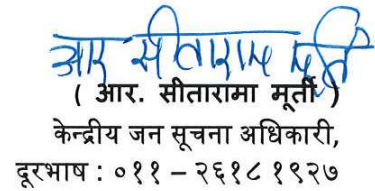 आर सीताराम मूर्ति
( आर. सीतारामा मूर्ती )
केन्द्रीय जन सूचना अधिकारी,
दूरभाष : ०११ – २६१८ १९२७